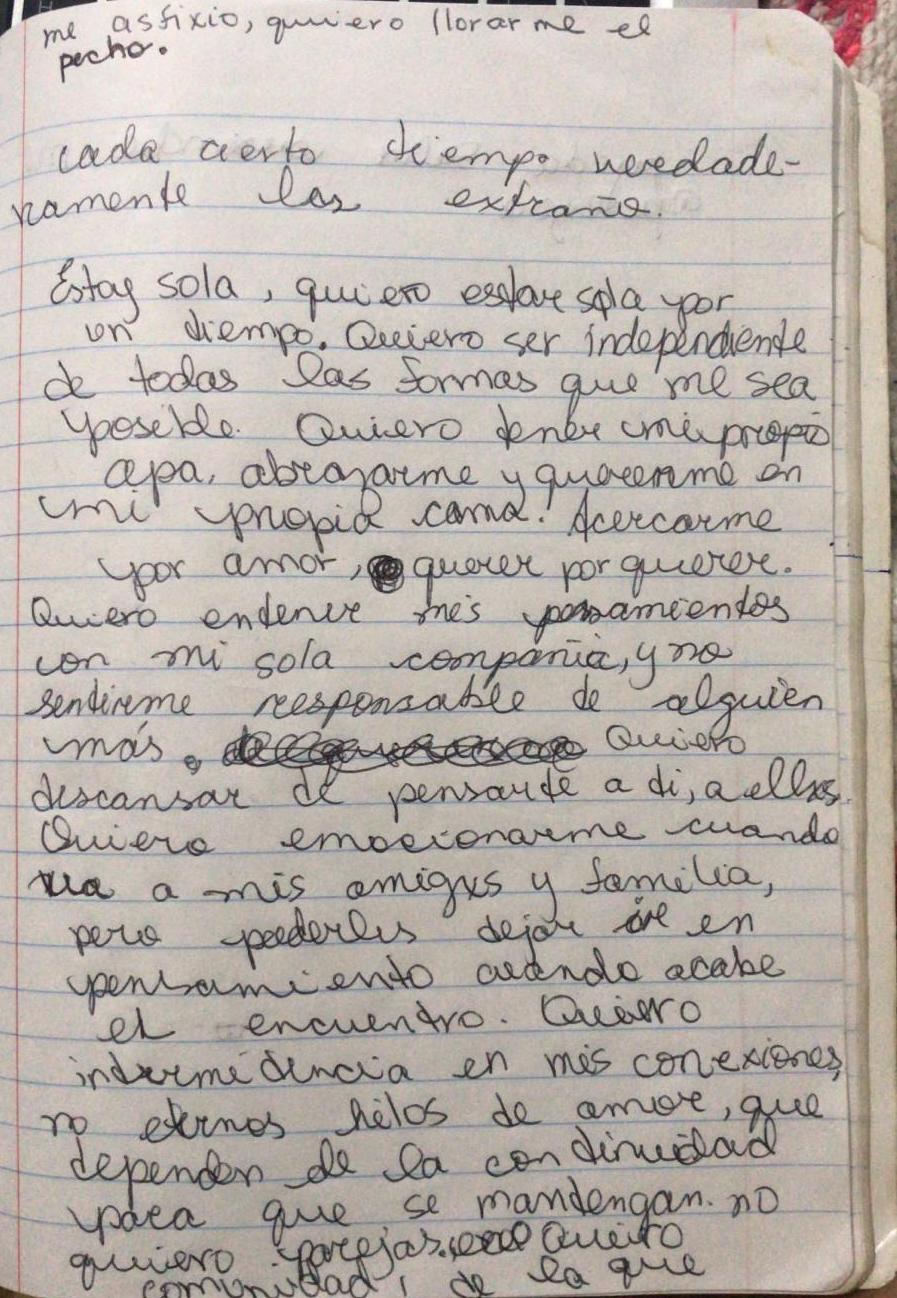 me asfixio, quiero llorarme el
pecho.
cada cierto tiempo verdade-
ramente los extraño.
Estoy sola, quiero estar sola por
un tiempo. Quiero ser independiente
de todas las formas que me sea
posible. Quiero tener mi propio
apa, abrazarme y quererme en
mi propia cama. Acercarme
por amor, querer por querer.
Quiero entener mis pensamientos
con mi sola compañia, y no
sentirme responsable de alguien
más. Quiero
descansar de pensarte a ti, a ellxs.
Quiero emocionarme cuando
vea a mis amigxs y familia,
pero poderlxs dejar ir en
pensamiento cuando acabe
el encuentro. Quiero
intermitencia en mis conexiones,
no eternos hilos de amor, que
dependen de la continuidad
para que se mantengan. no
quiero parejas. Quiero
comunidad, de la que